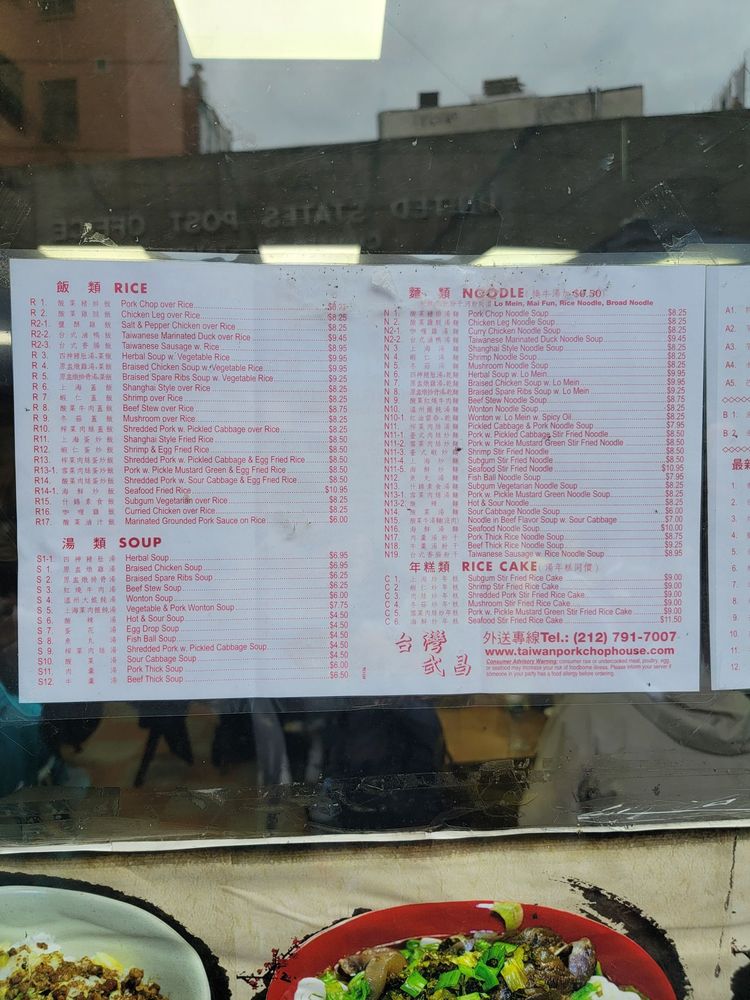 UNITED STATES POST OFFICE
飯 類 RICE
R 1. Pork Chop over Rice
R 2. Chicken Leg over Rice $8.25
R2-1. Salt & Pepper Chicken over Rice $8.25
R2-2. Taiwanese Marinated Duck over Rice $9.45
R2-3. Taiwanese Sausage w. Rice $8.95
R 3. Herbal Soup w. Vegetable Rice $9.95
R 4. Braised Chicken Soup w. Vegetable Rice $9.95
R 5. Braised Spare Ribs Soup w. Vegetable Rice $9.25
R 6. 上 海 蓋 飯 Shanghai Style over Rice $8.25
R 7. 蝦 仁 蓋 飯 Shrimp over Rice $8.25
R 8. 酸菜牛肉蓋飯 Beef Stew over Rice $8.75
R 9. 冬 菇 蓋 飯 Mushroom over Rice $8.25
R10. 榨菜肉絲蓋飯 Shredded Pork w. Pickled Cabbage over Rice $8.25
R11. 上 海 蛋 炒 飯 Shanghai Style Fried Rice $8.50
R12. 蝦 仁 蛋 炒 飯 Shrimp & Egg Fried Rice $8.50
R13. 榨菜肉絲蛋炒飯 Shredded Pork w. Pickled Cabbage & Egg Fried Rice $8.50
R13-1. 雪菜肉絲蛋炒飯 Pork w. Pickle Mustard Green & Egg Fried Rice $8.50
R14. 酸菜肉絲蛋炒飯 Shredded Pork w. Sour Cabbage & Egg Fried Rice $8.50
R14-1. 海 鮮 炒 飯 Seafood Fried Rice $10.95
R15. 什 錦 素 會 飯 Subgum Vegetarian over Rice $8.25
R16. 咖 哩 雞 飯 Curried Chicken over Rice $8.25
R17. 酸 菜 滷 汁 飯 Marinated Grounded Pork Sauce on Rice $6.00
湯 類 SOUP
S1-1. 四 神 豬 肚 湯 Herbal Soup $6.95
S 1. 原 盅 燉 雞 湯 Braised Chicken Soup $6.95
S 2. 原 盅 燉 排 骨 湯 Braised Spare Ribs Soup $6.25
S 3. 紅 燒 牛 肉 湯 Beef Stew Soup $6.25
S 4. 溫州大餛飩湯 Wonton Soup $6.00
S 5. 上海菜肉餛飩湯 Vegetable & Pork Wonton Soup $7.75
S 6. 酸 辣 湯 Hot & Sour Soup $4.50
S 7. 蛋 花 湯 Egg Drop Soup $4.50
S 8. 魚 丸 湯 Fish Ball Soup $4.50
S 9. 榨 菜 肉 絲 湯 Shredded Pork w. Pickled Cabbage Soup $4.50
S10. 酸 菜 湯 Sour Cabbage Soup $4.50
S11. 肉 羹 湯 Pork Thick Soup $6.00
S12. 牛 羹 湯 Beef Thick Soup $6.50
麵 類 NOODLE $0.50
Lo Mein, Mai Fun, Rice Noodle, Broad Noodle
N 1. Pork Chop Noodle Soup $8.25
N 2. Chicken Leg Noodle Soup $8.25
N2-1. Curry Chicken Noodle Soup $8.25
N2-2. Taiwanese Marinated Duck Noodle Soup $9.45
N 3. 上 海 湯 麵 Shanghai Style Noodle Soup $8.25
N 4. 蝦 仁 湯 麵 Shrimp Noodle Soup $8.25
N 5. 冬 菇 湯 麵 Mushroom Noodle Soup $8.25
N 6. Herbal Soup w. Lo Mein $9.95
N 7. Braised Chicken Soup w. Lo Mein $9.95
N 8. Braised Spare Ribs Soup w. Lo Mein $9.25
N 9. Beef Stew Noodle Soup $8.75
N10. Wonton Noodle Soup $8.25
N10-1. Wonton w. Lo Mein w. Spicy Oil $8.25
N11. Pickled Cabbage & Pork Noodle Soup $7.95
N11-1. Pork w. Pickled Cabbage Stir Fried Noodle $8.50
N11-2. Pork w. Pickle Mustard Green Stir Fried Noodle $8.50
N11-3. Shrimp Stir Fried Noodle $8.50
N11-4. Subgum Stir Fried Noodle $8.50
N11-5. 海 鮮 炒 麵 Seafood Stir Fried Noodle $10.95
N12. 魚 丸 湯 麵 Fish Ball Noodle Soup $7.95
N13. Subgum Vegetarian Noodle Soup $8.25
N13-1. Pork w. Pickle Mustard Green Noodle Soup $8.25
N13-2. Hot & Sour Noodle $8.25
N14. Sour Cabbage Noodle Soup $6.00
N15. Noodle in Beef Flavor Soup w. Sour Cabbage $7.00
N16. 海 鮮 湯 麵 Seafood Noodle Soup $10.00
N17. Pork Thick Rice Noodle Soup $8.75
N18. Beef Thick Rice Noodle Soup $9.25
N19. Taiwanese Sausage w. Rice Noodle Soup $8.95
年糕類 RICE CAKE(湯年糕同價)
C 1. 上 海 炒 年 糕 Subgum Stir Fried Rice Cake $9.00
C 2. 蝦 仁 炒 年 糕 Shrimp Stir Fried Rice Cake $9.00
C 3. 肉 絲 炒 年 糕 Shredded Pork Stir Fried Rice Cake $9.00
C 4. 冬 菇 炒 年 糕 Mushroom Stir Fried Rice Cake $9.00
C 5. Pork w. Pickle Mustard Green Stir Fried Rice Cake $9.00
C 6. 海 鮮 炒 年 糕 Seafood Stir Fried Rice Cake $11.50
台灣
武昌
外送專線Tel.: (212) 791-7007
www.taiwanporkchophouse.com
Consumer Advisory Warning: consumer raw or undercooked meat, poultry, egg,
or seafood may increase your risk of foodborne illness. Please inform your server if
someone in your party has a food allergy before ordering.
A1.
A2.
A3.
A4.
A5.
B 1.
B 2.
最新
1.
2.
3.
4.
5.
6.
7.
8.
9.
10.
11.
12.